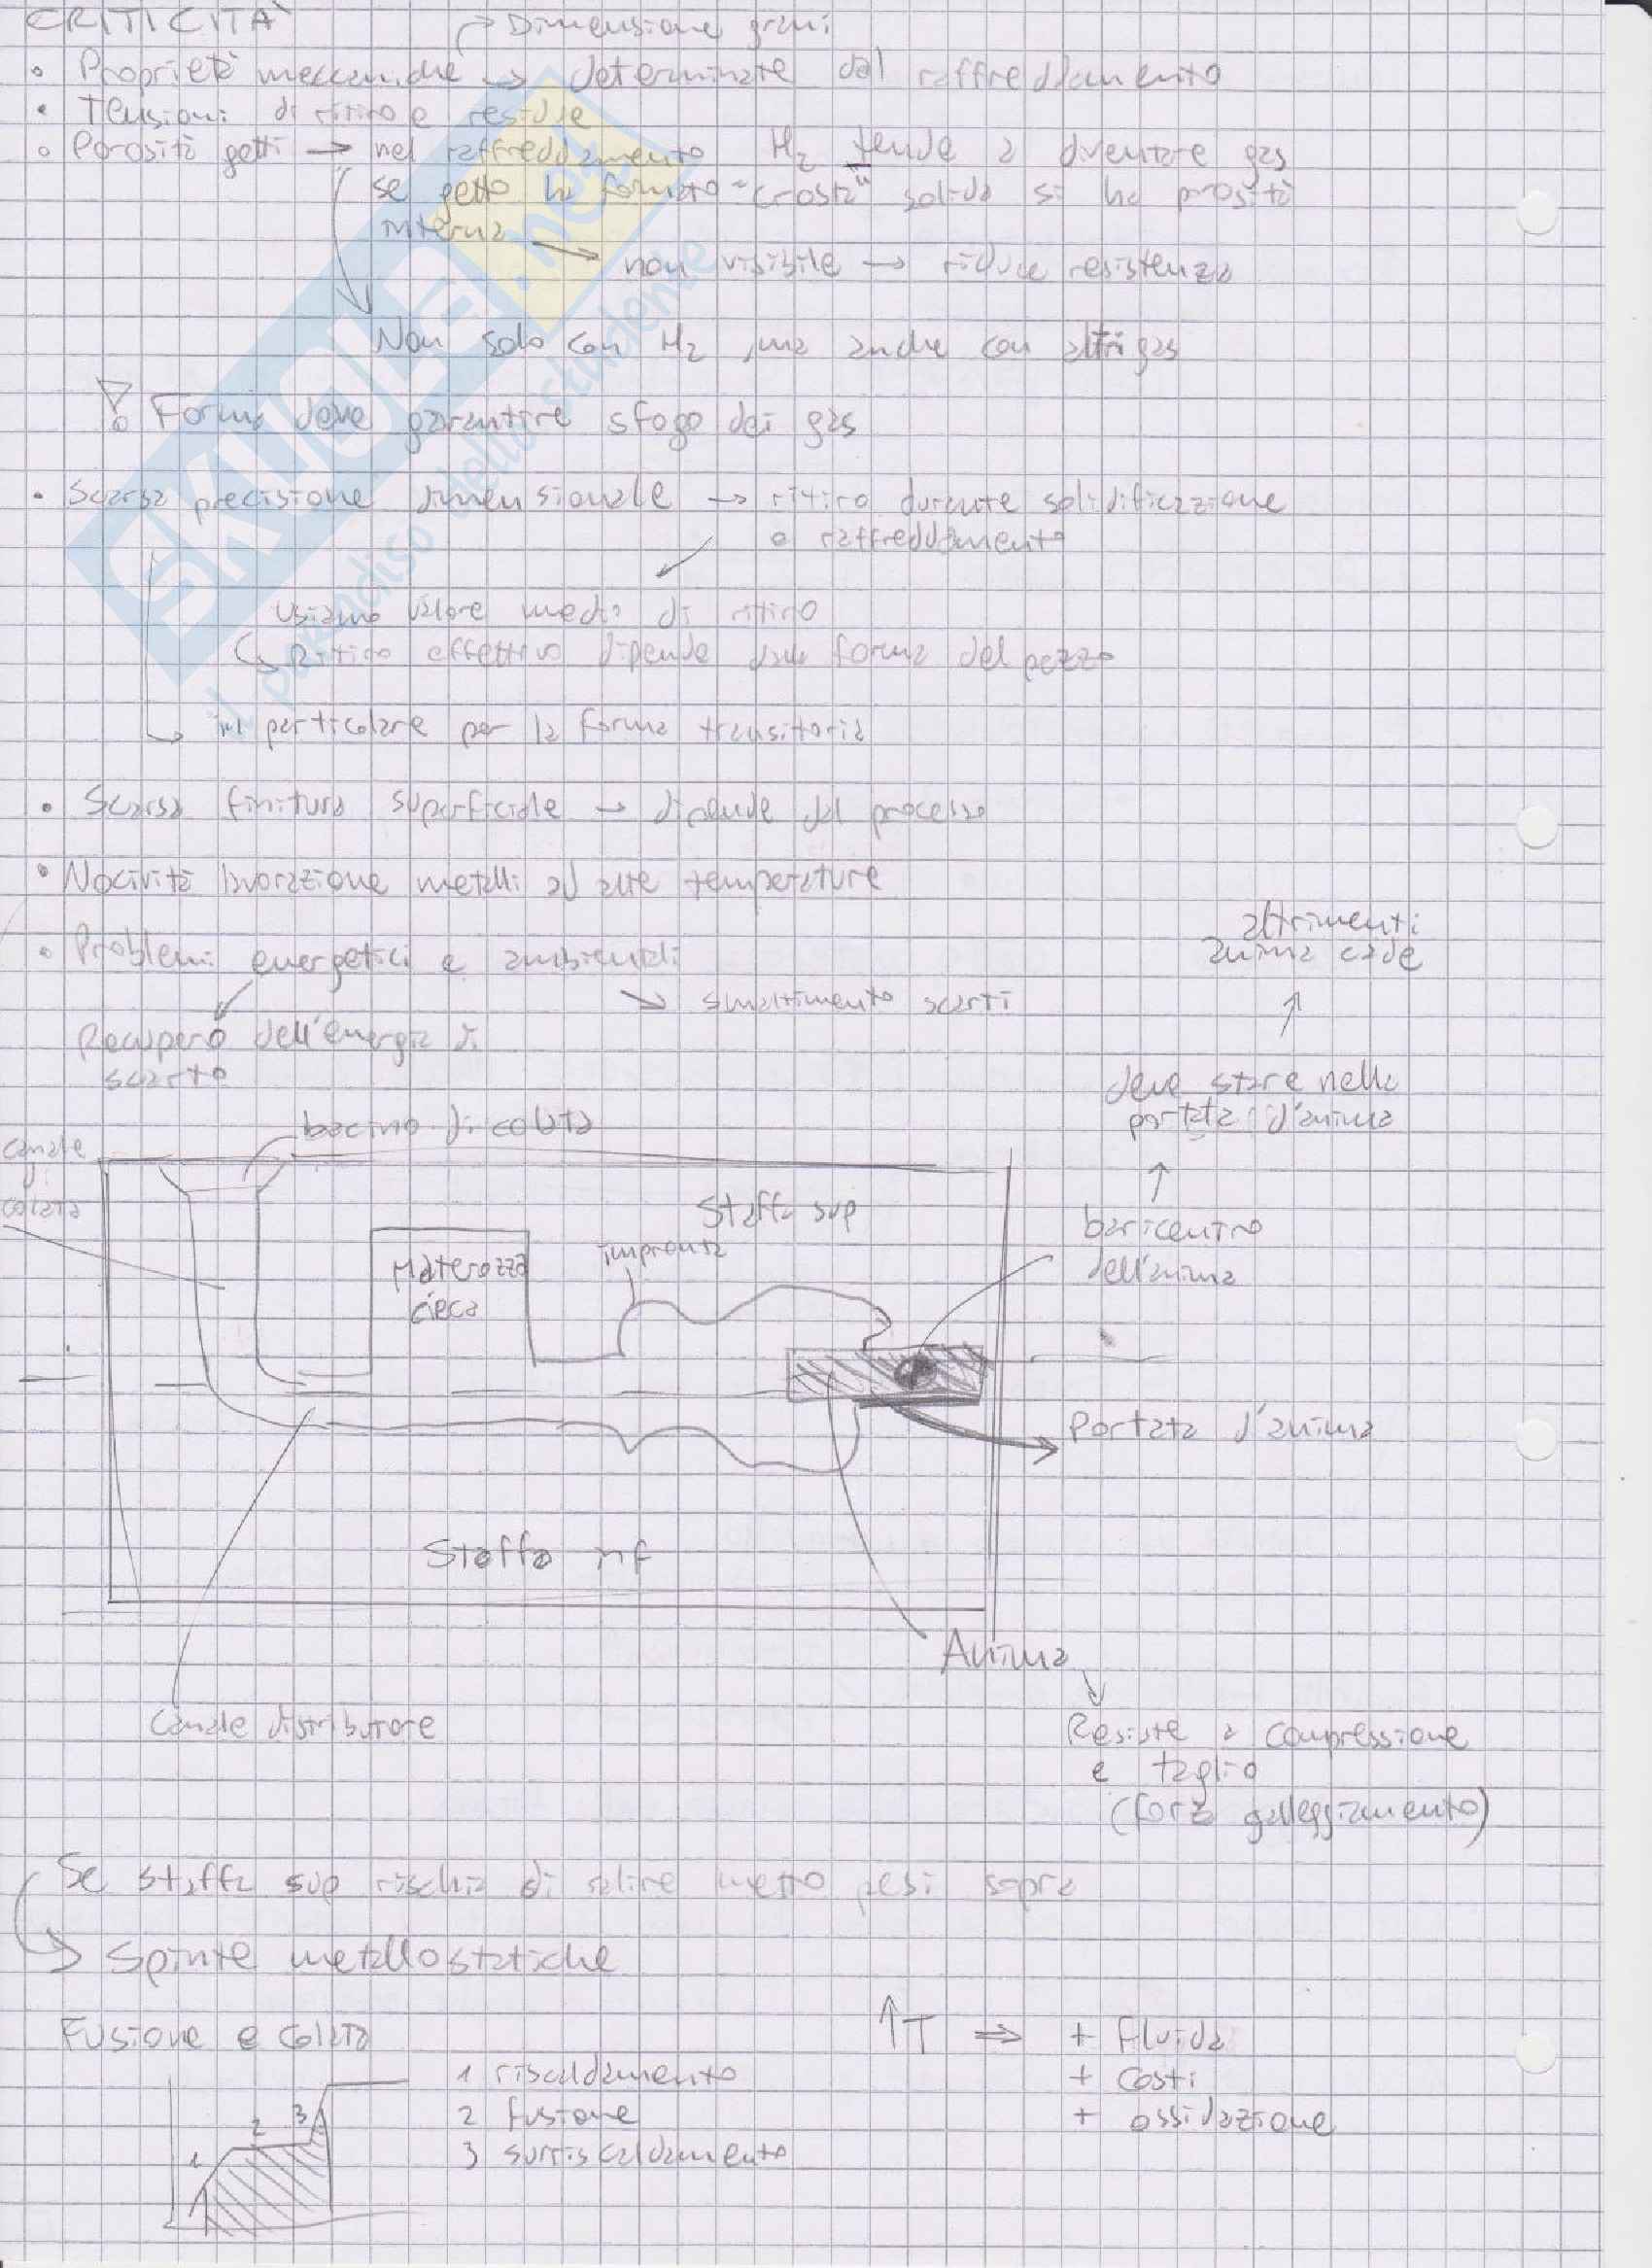 CRITICITÀ
→ Dimensione grani
• Proprietà meccaniche → determinate dal raffreddamento
• Tensioni di ritiro e residue
• Porosità getti → nel raffreddamento H2 tende a diventare gas
se getto ha formato "crosta" solida si ha porosità
interna
→ non visibile → riduce resistenza
Non solo con H2, ma anche con altri gas
Forma deve garantire sfogo dei gas
• Scarsa precisione dimensionale → ritiro durante solidificazione
o raffreddamento
Usiamo valore medio di ritiro
↳ Ritiro effettivo dipende dalla forma del pezzo
↳ in particolare per la forma transitoria
• Scarsa finitura superficiale → dipende dal processo
• Nocività lavorazione metalli ad alte temperature
• Problemi energetici e ambientali
↘ smaltimento scarti
Recupero dell'energia di
scarto
altrimenti
anima cade
deve stare nella
portata d'anima
baricentro
dell'anima
bacino di colata
canale
di
colata
Staffa sup
impronta
Materozza
cieca
Portata d'anima
Staffa inf
Anima
Canale distributore
Resiste a compressione
e taglio
(forza galleggiamento)
Se staffa sup rischia di salire metto pesi sopra
↳ Spinte metallostatiche
Fusione e colata
1 riscaldamento
2 fusione
3 surriscaldamento
1
2
3
↑T ⇒ + fluida
+ costi
+ ossidazione
SKUOLA.net
il paradiso dello studente